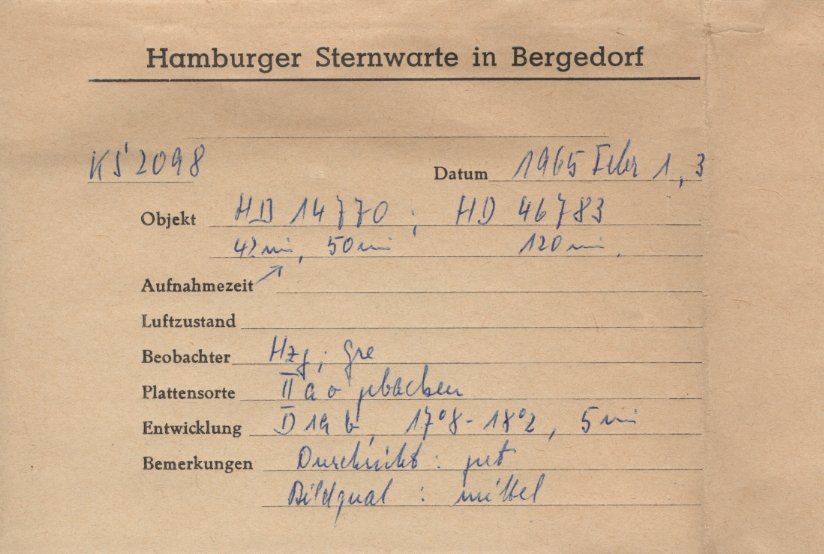 Hamburger Sternwarte in Bergedorf
KS 2098 Datum 1965 Febr 1, 3
Objekt HD 14770 ; HD 46783
42 min, 50 min 120 min.
Aufnahmezeit
Luftzustand
Beobachter Hzg; Gre
Plattensorte II a o gebacken
Entwicklung D 19 b, 17°8 - 18°2, 5 min
Bemerkungen Durchsicht : gut
Bildqual : mittel